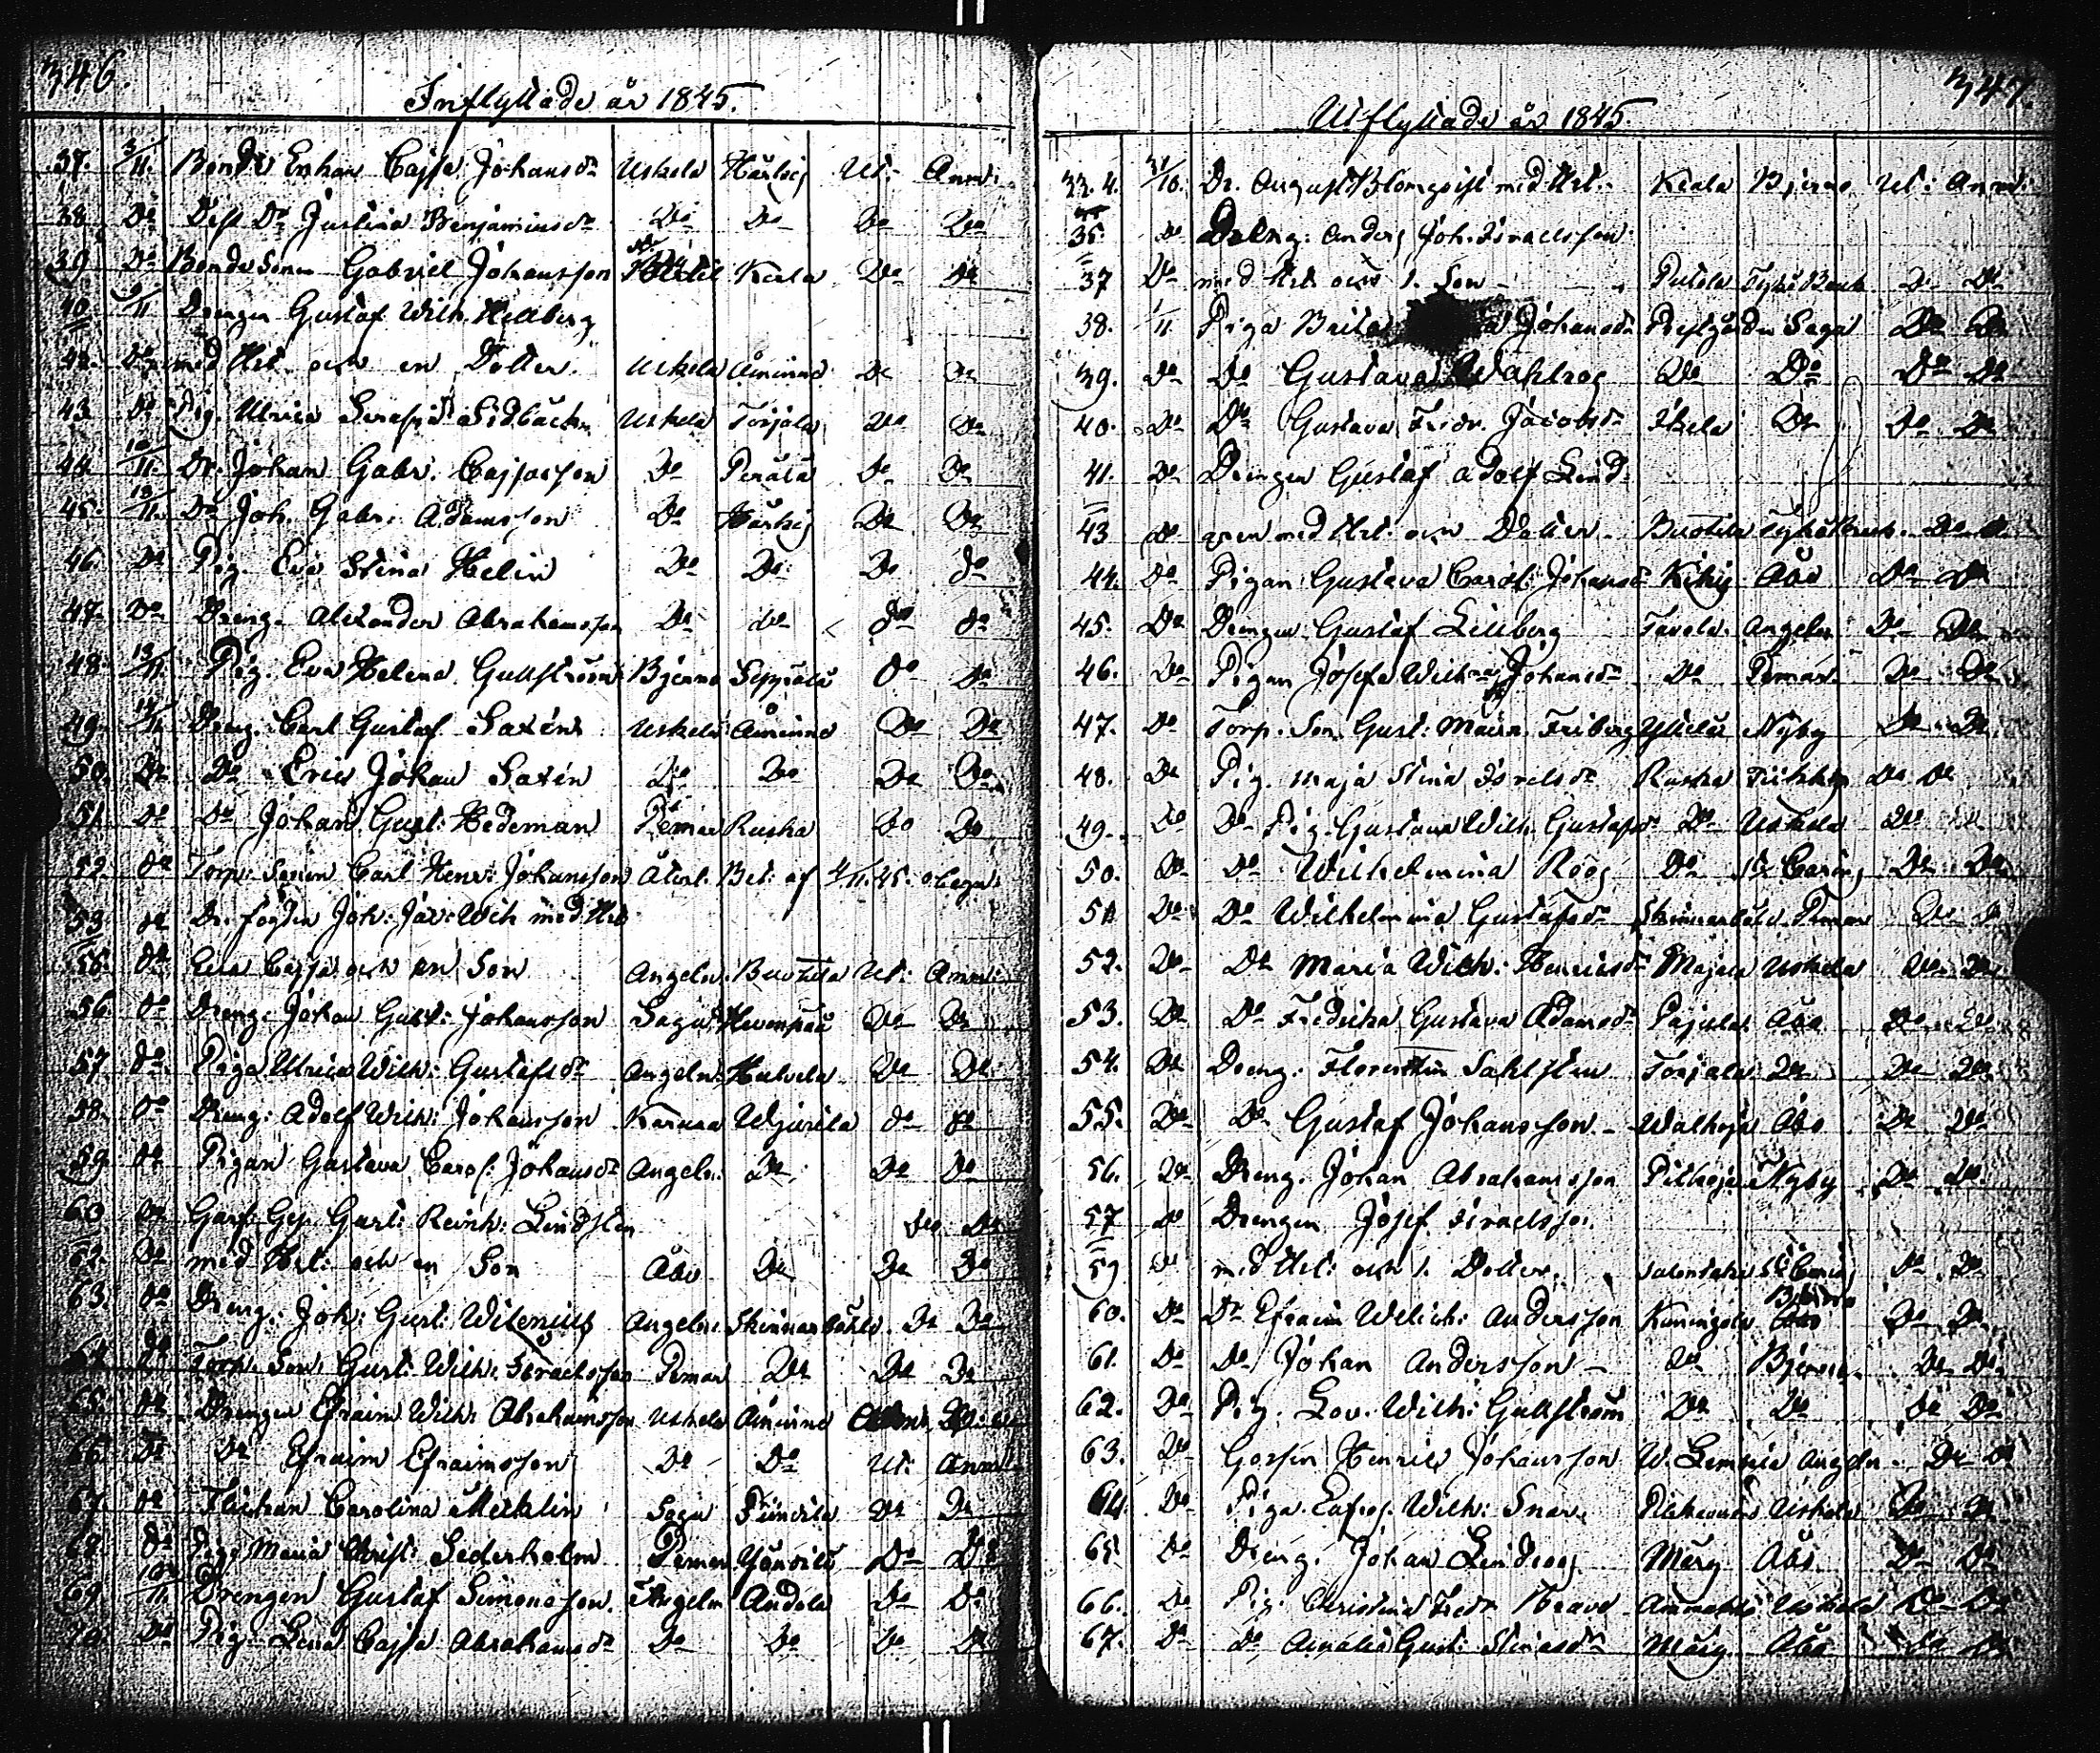 346.
Inflyttade år 1845.
37. 3/11. Bonde Enkan Cajsa Johansdr Uskela Härkij Ut: Anm:
38. Do Dess Dr Justina Benjaminsdr Do Do Do Do
39. Do Bonde Sonen Gabriel Johansson Kiala Do Do
40. 9/11 Drengen Gustaf Wilh. Hellberg
42. Do med Hst. och en Dotter. Uskela Åminne Do Do
43. Do Pig. Ulrica Seraf: Sidbäck Uskela Torjola Do Do
44. 10/11. Dr. Johan Gabr. Cajsasson Do Peräla Do Do
45. 13/11. Do Joh. Gabr. Adamsson Do Härkij Do Do
46. Do Pig. Eva Stina Helin Do Do Do do
47. Do Dreng. Alexander Abrahamsson Do do do do
48. 13/11. Pig. Eva Helena Gullström Bjerno Seppälä do Do
49. 14/11. Dreng. Carl Gustaf Saxén Uskela Åminne Do Do
50. Do Do Eric Johan Saxén Do Do Do Do
51. Do Do Johan Gust: Hedeman Pemar Ruska Do Do
52. do Torp: Sonen Carl Henr: Johansson Återl. Bet: af 4/11.45. obegn.
53 do Dr. fogden Joh: Jac: Wik med Hst
55. do Eva Cajsa och en Son Angeln: Buotila Ut: Anm:
56. do Dreng. Johan Gust: Johansson Sagu Hevonpää Do Do
57. do Piga Ulrica Wilh: Gustafsdr Angeln: Huhvela Do Do
58. do Dreng: Adolf Wilh: Johansson Karuna Wjurila do do
59. do Pigan Gustava Carol: Johansdr Angeln: Do Do Do
60 Do Garf. Ges. Gust: Reinh: Lindsten Do Do
62. Do med Hst: och en Son Åbo Do Do Do
63. do Dreng: Joh: Gust: Witenius Angeln: Skinnarbäkk. Do Do
64 do Torp. Son Gust: Wilh: Israelsson Pemar Do Do Do
65. do Drengen Efraim Wilh: Abrahamsson Uskela Åminne
66 Do Do Efraim Efraimsson Do Do Ut: Anm:
67. do Flickan Carolina Mechelin Sagu Do Do
68. do Piga Maria Christ: Sederholm Pemar Do Do
69 18/11. Drengen Gustaf Simonsson. Angeln Andola Do Do
70. Do Pig. Lena Cajsa Abrahamsdr Do Do Do Do
347.
Utflyttade år 1845.
4. 31/10. Dr. August Blomqvist med Hst. Kiala Bjerno Ut: Anm:
35. do Dreng. Anders Joh. Israelsson
37 Do med Hst och 1. Son Pukola Tykö Bruk Do Do
38. 1/11. Piga Johansdr Prestgården Sagu Do Do
39. Do Do Gustava Wahlroos Do Do Do Do
40. Do Do Gustava Fredr. Jacobsdr Do Do Do
41. Do Drengen Gustaf Adolf Lind-
43 do gren med Hst: och Dotter Buotila Tykö Bruk. Do Do
44. Do Pigan Gustava Carol: Johansdr Åbo Do Do
45. Do Drengen Gustaf Liliberg Tavola Angeln: Do Do
46. Do Pigan Josefa Wilh: Johansdr Do Pemar Do Do
47. Do Torp. Son Gust: Maur. Friberg Nyby Do Do
48. Do Pig. Maja Stina Israelsdr Ruska Do Do
49. Do Do Pig. Gustava Wilh. Gustafsdr Do Uskela Do
50. Do Do Wilhelmina Roos Do St Carins Do Do
51. Do Do Wilhelmina Gustafsdr Skinnarbäkk. Pemar Do Do
52. Do Do Maria Wilh: Henricsdr Majala Uskela Do Do
53. Do Do Fredrika Gustava Adamsdr Pajula Åbo Do Do
54. Do Dreng: Florentin Sahlsten Torjala Do Do Do
55. Do Do Gustaf Johansson Walkoja Åbo Do Do
56. Do Dreng. Johan Abrahamsson Pitkoja Nyby Do Do
57 do Drengen Josef Israelsson
59 do med Hst: och 1. Dotter St Carins Do Do
60. Do Dr Efraim Andersson Koningola Bjerno Do Do
61. Do Do Johan Andersson do Bjerno. Do Do
62. Do Pig. Lov. Wilh: Gullström Do Do Do Do
63. Do Gossen Henric Johansson Angeln. Do Do
64. Do Piga Eufros. Wilh: Snare Uskela Do Do
65. Do Dreng. Johan Lindroos Märy Åbo Do Do
66. Do Pig. Christina Fredr Uskela Do Do
67. Do Do Amalia Gust: Märy Åbo Do Do